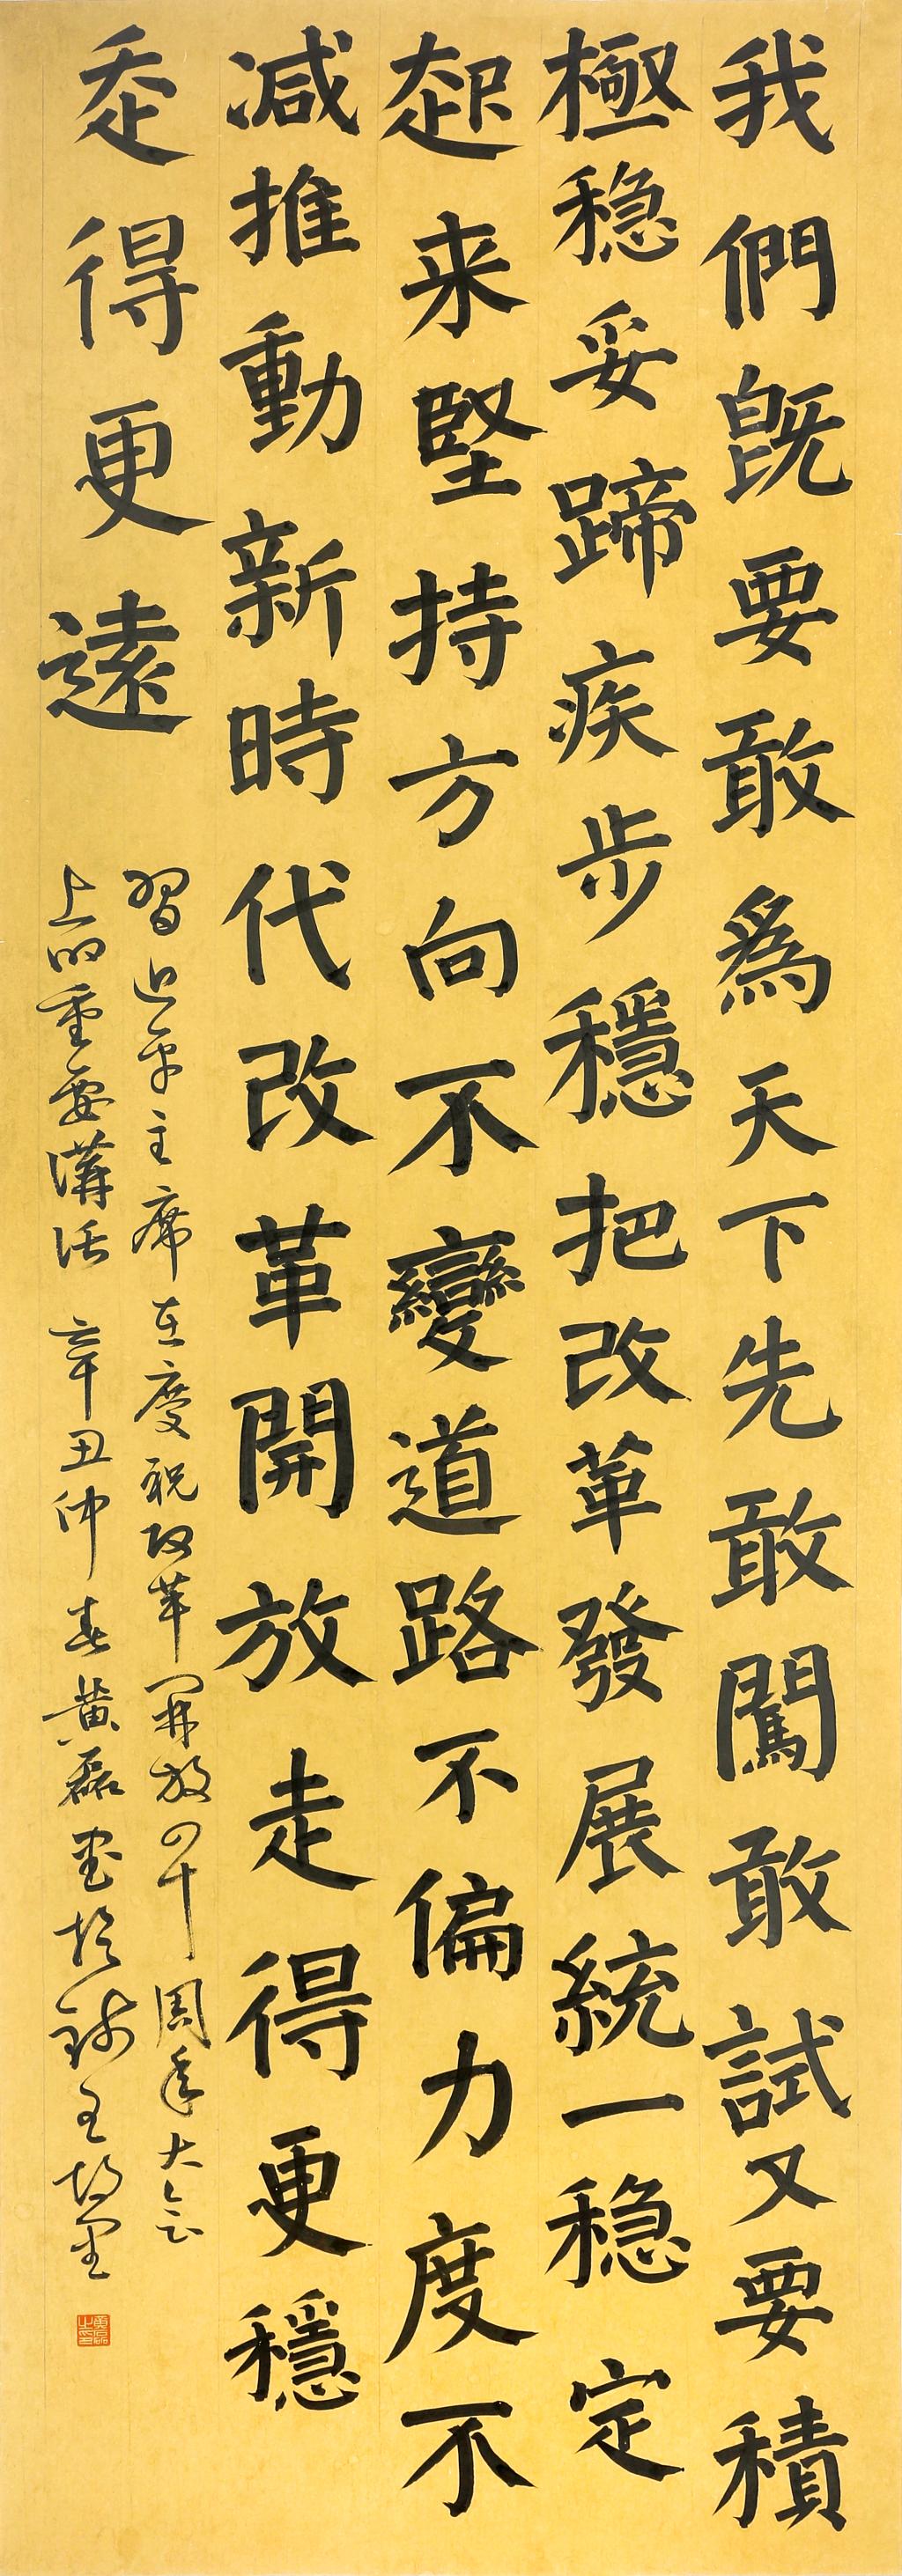 我們既要敢為天下先敢闖敢試又要積
極稳妥蹄疾步穩把改革發展統一稳定
起来堅持方向不變道路不偏力度不
減推動新時代改革開放走得更穩
走得更遠
習近平主席在慶祝改革開放四十周年大会
上的重要講話 辛丑仲春黄磊书於